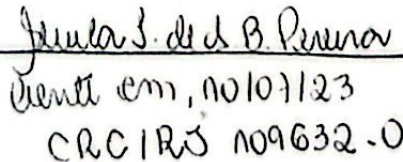 J. de S B. Pereira
Ciente em, 10/07/23
CRC/RJ 109632-0